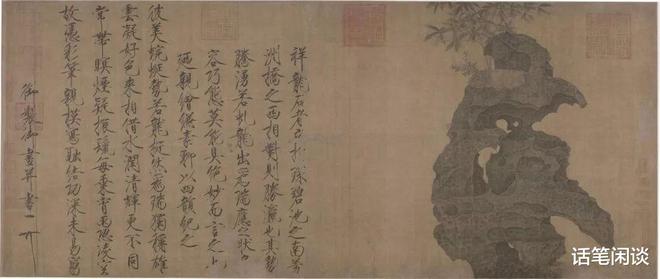 祥龍石者立於環碧池之南芳
洲橋之西相對則勝瀛也其勢
騰湧若虬龍出為瑞應之狀奇
容巧態莫能具絕妙而言之也
廼親繪縑素聊以四韻紀之
彼美蜿蜒勢若龍挺然為瑞獨稱雄
雲凝好色來相借水潤清輝更不同
常帶瞑煙疑振鬣每乘宵雨恐凌空
故憑彩筆親模寫融結功深未易窮
御製御畫并書
话笔闲谈